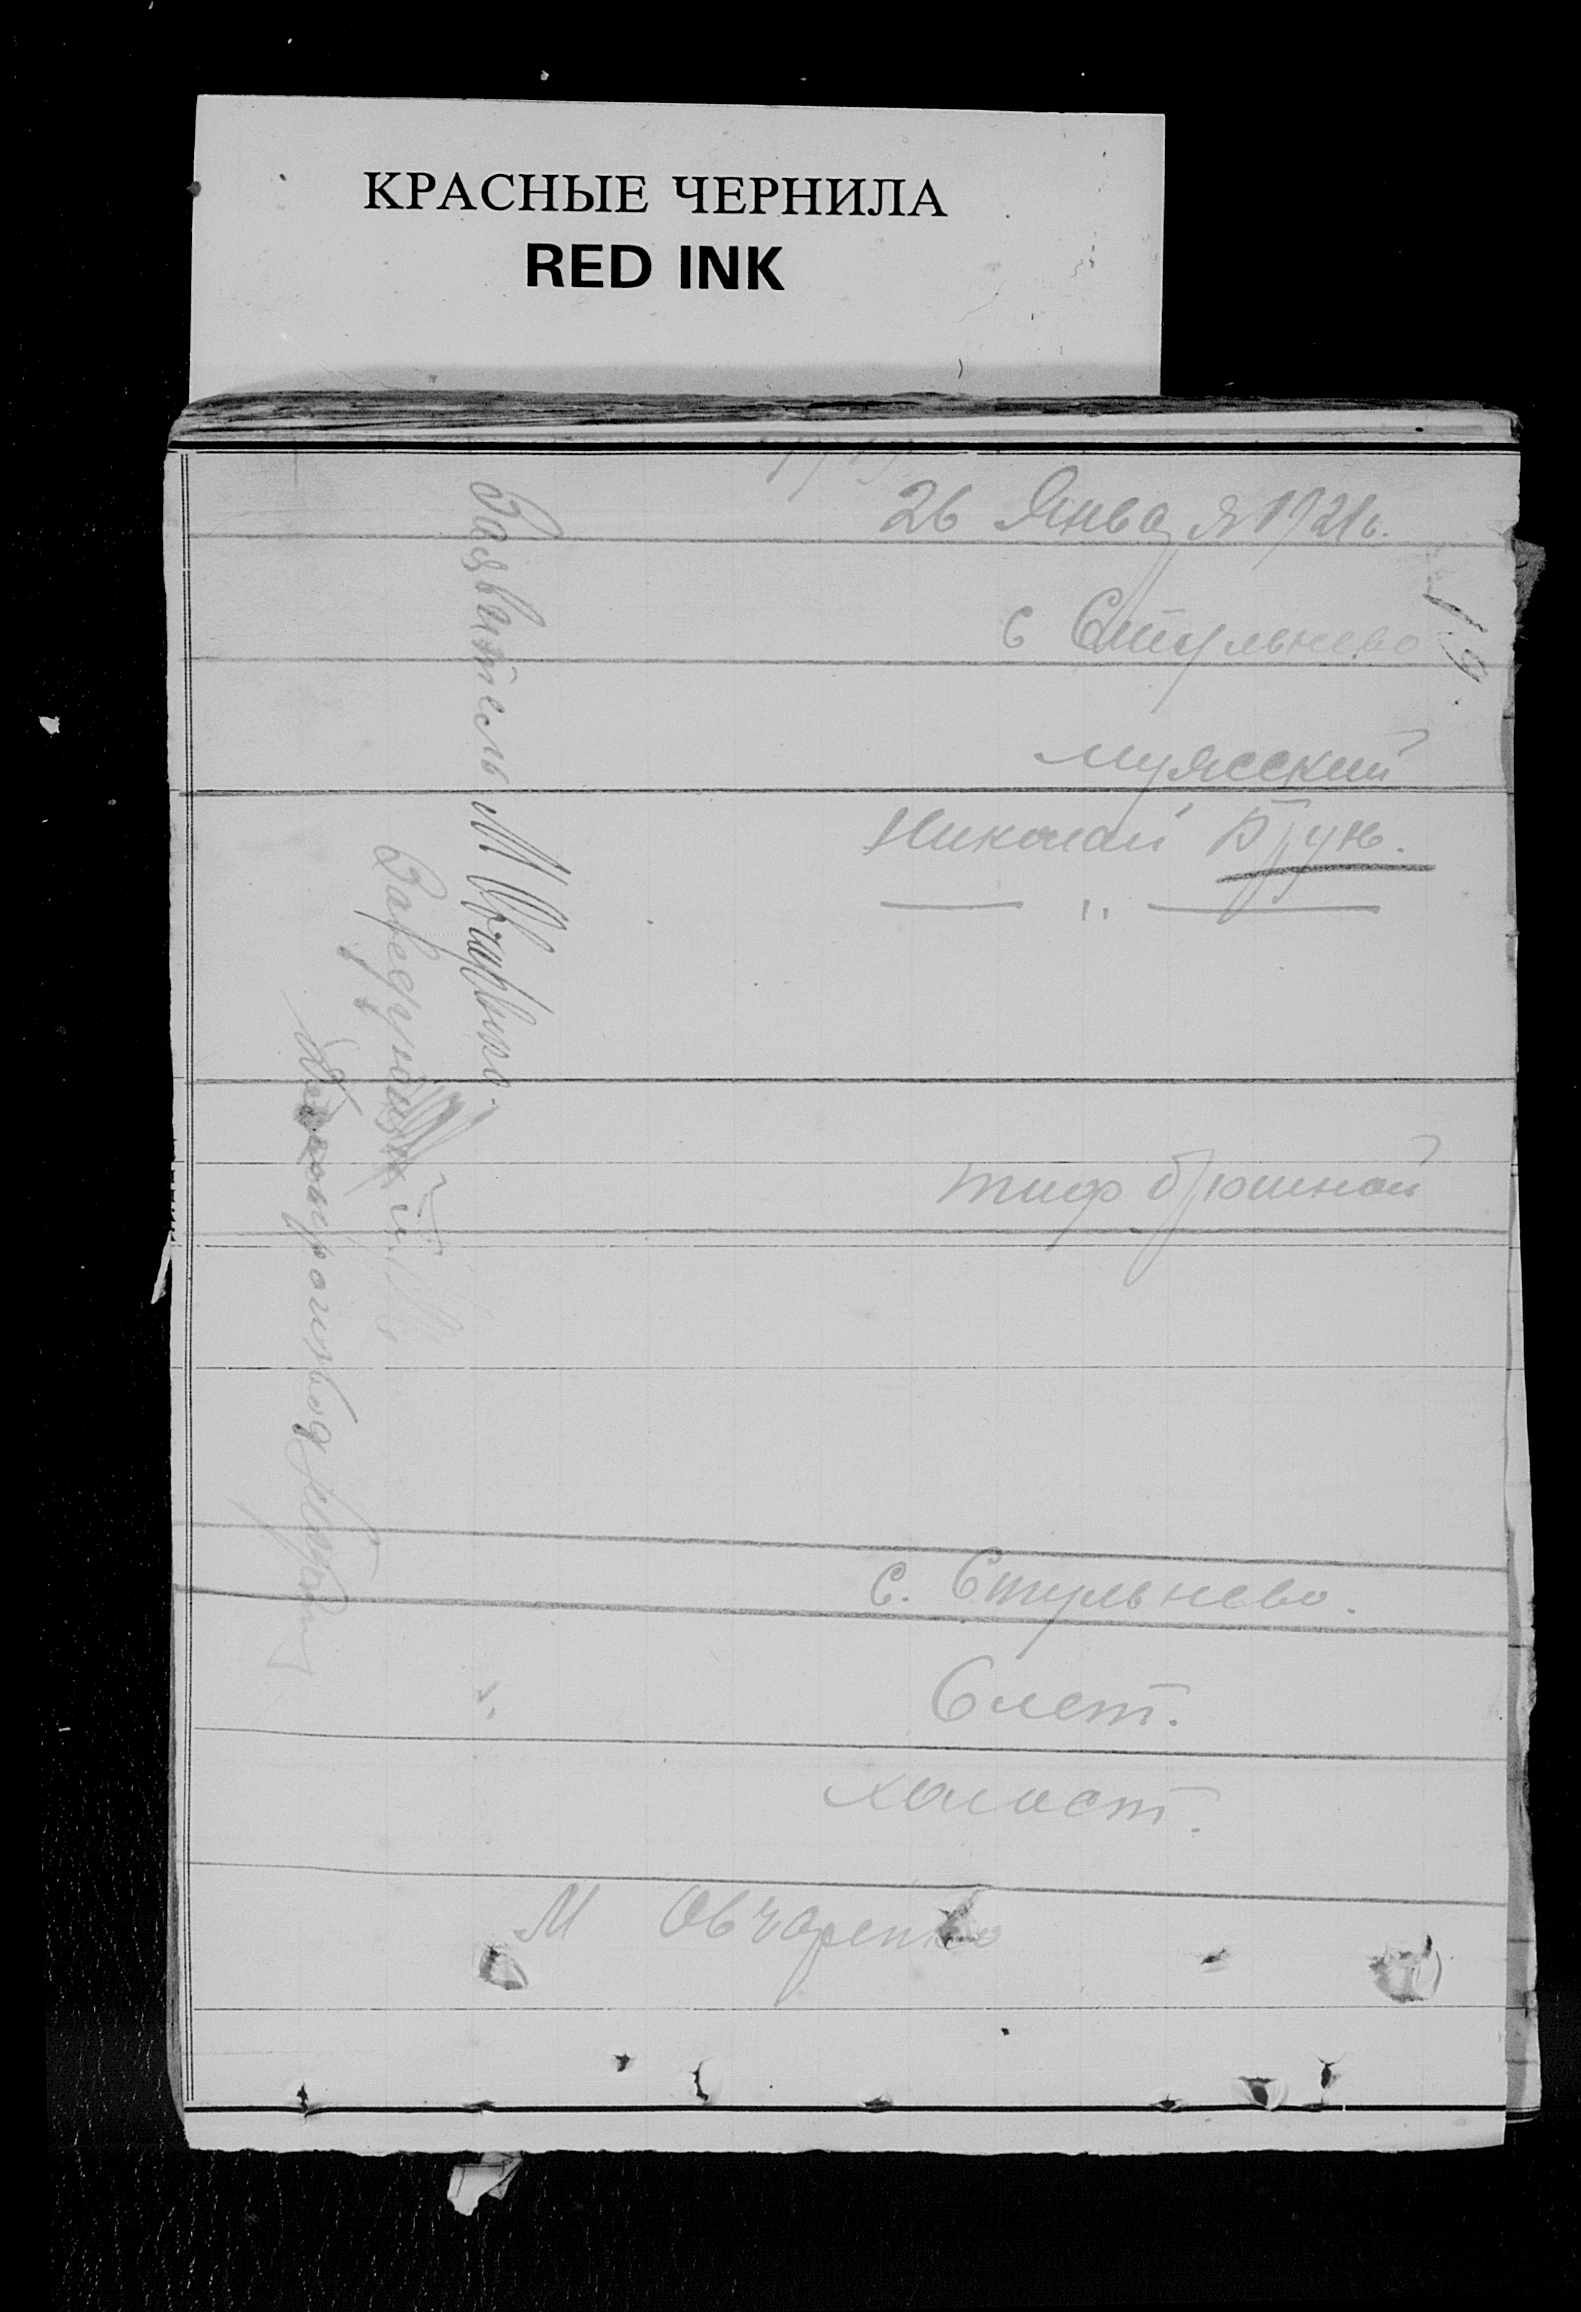 КРАСНЫЕ ЧЕРНИЛА
RED INK
26 Января 1921 г.
19.
с Стульнево
мужеский
Николай Брун.
— " —
тиф брюшной
с. Стульнево.
6 лет.
холост.
М Овчаренко
Заявитель М Овчаренко.
Заведующий
Делопроизвод